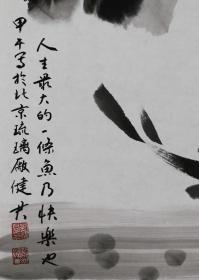 人生最大的一條魚乃快樂也
甲午写於北京琉璃廠健